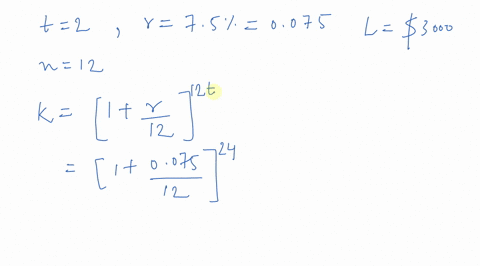 t = 2 , r = 7.5% = 0.075 L = $3000
n = 12
K = [1 + r/12]^12t
= [1 + 0.075/12]^24